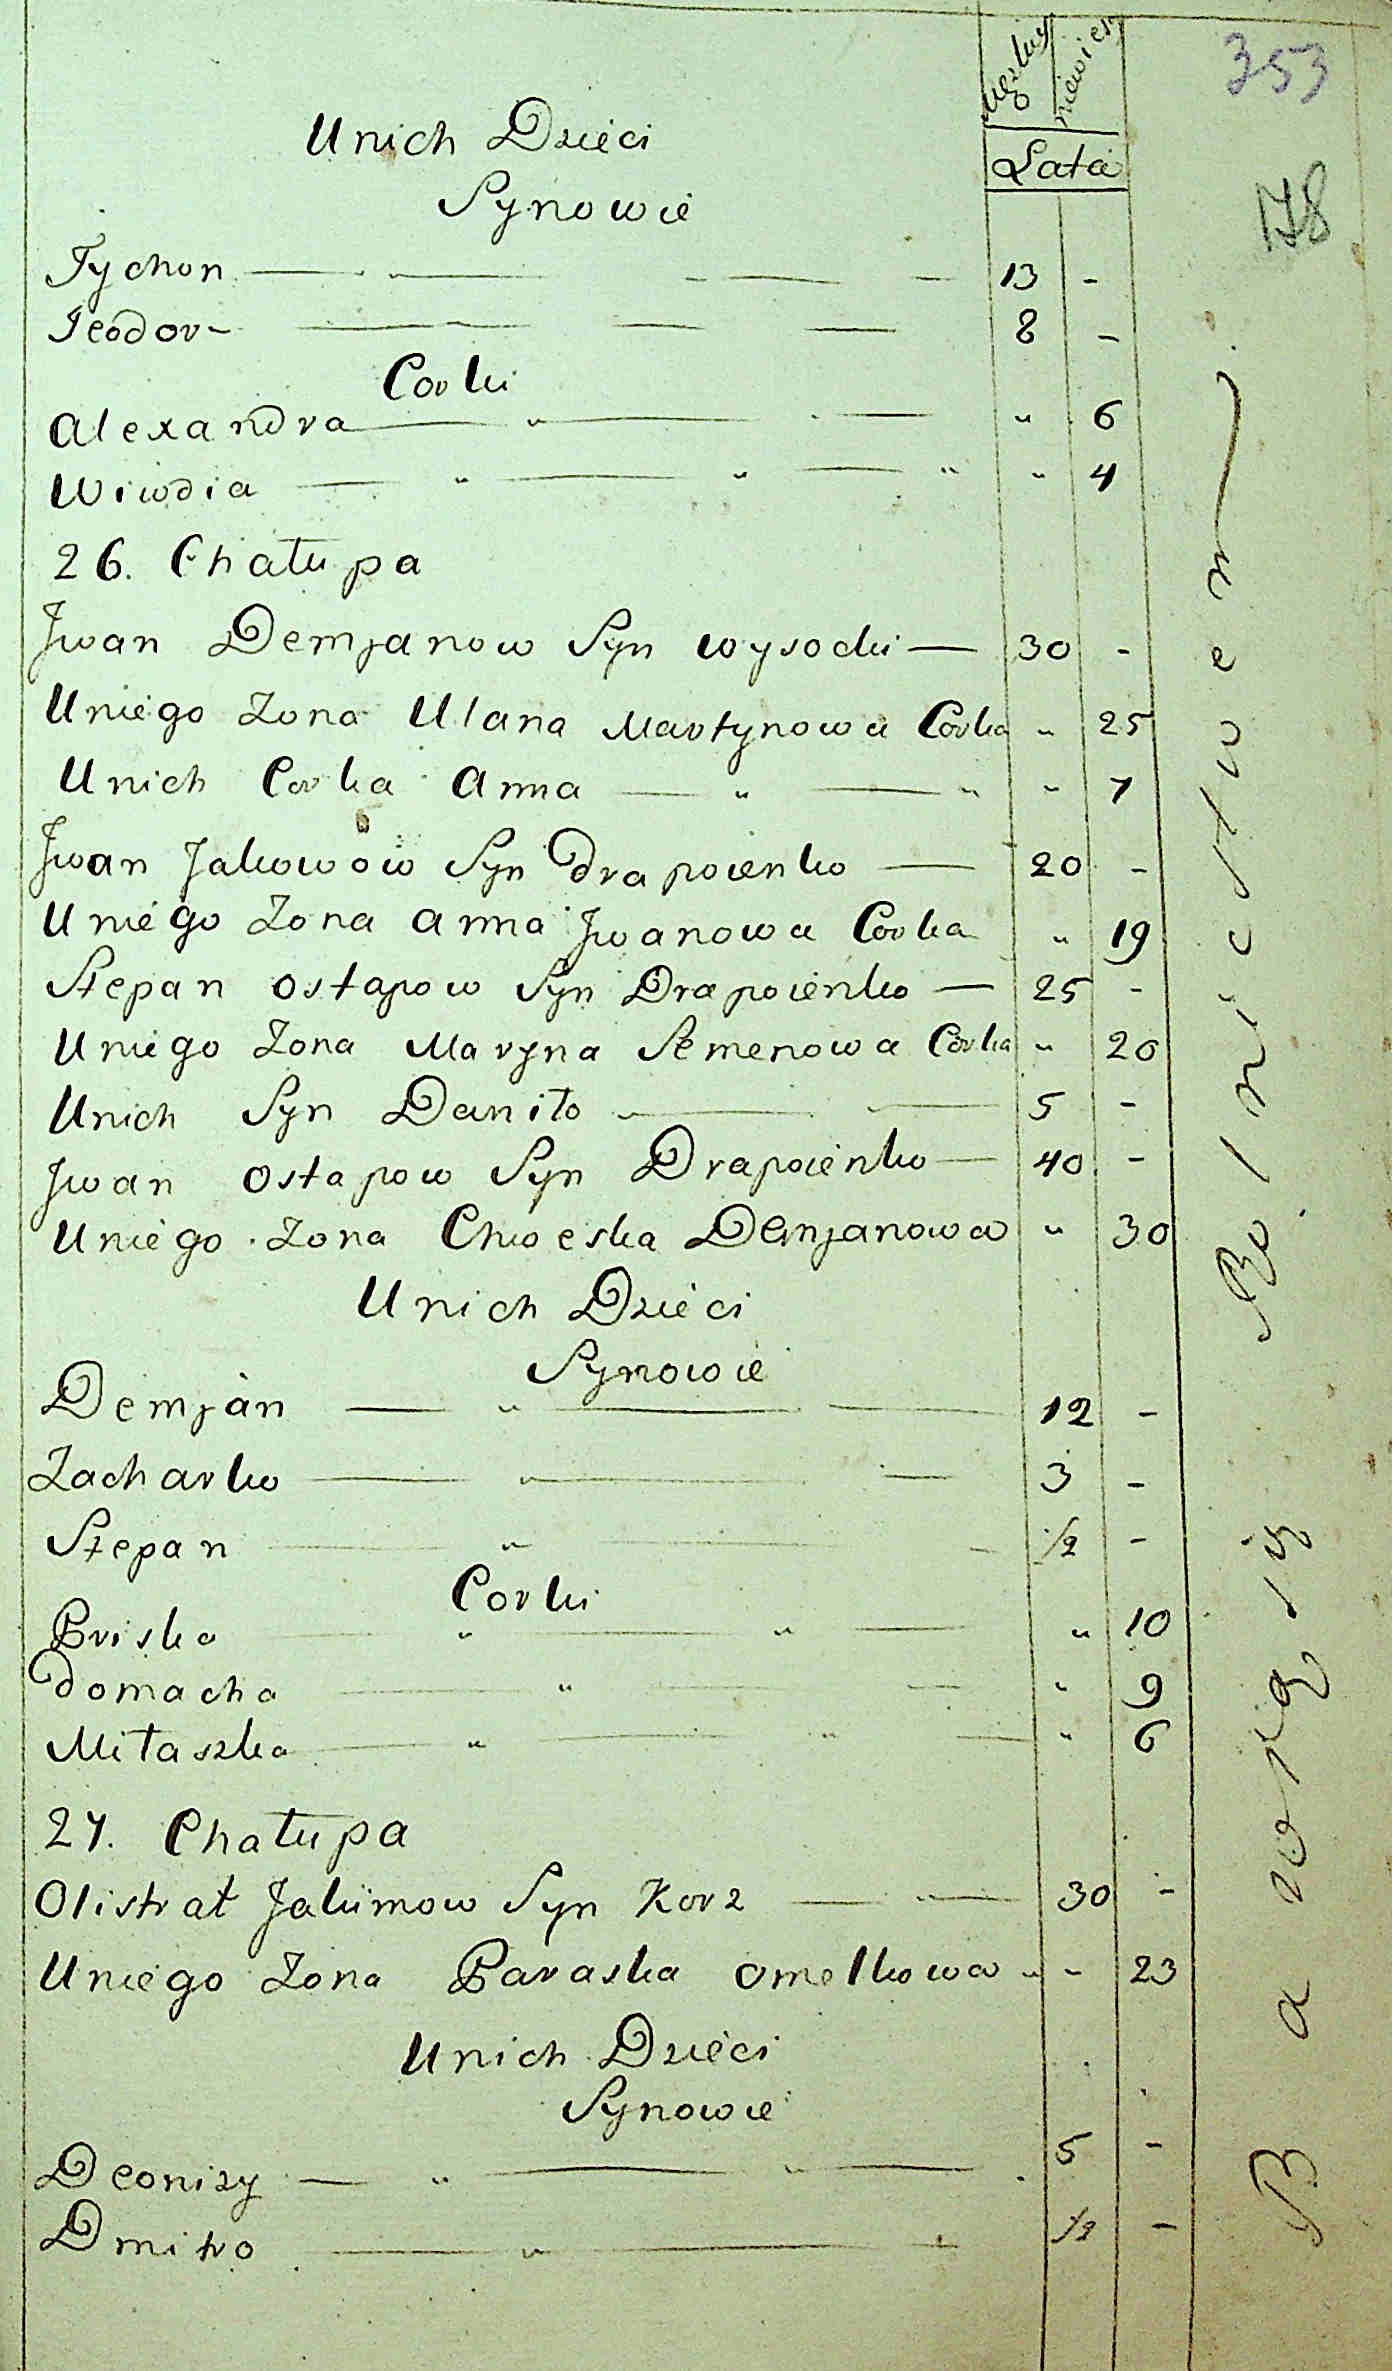 353
178
Męzkiey niewiesc
Lata
Unich Dzieci
Synowie
Tychon — — — — 13 -
Teodor - — — — 8 -
Corki
Alexandra — „ — — „ 6
Wiwdia — „ — „ — „ „ 4
26. Chałupa
Jwan Demjanow Syn wysocki — 30 -
Uniego Zona Ulana Martynowa Corka „ 25
Unich Corka Anna — „ — „ „ 7
Jwan Jakowow Syn Drapoienko — 20 -
Uniego Zona Anna Jwanowa Corka „ 19
Stepan Ostapow Syn Drapoienko — 25 -
Uniego Zona Maryna Semenowa Corka „ 20
Unich Syn Daniło — — 5 -
Jwan Ostapow Syn Drapoienko — 40 -
Uniego Zona Chwoeska Demjanowa „ 30
Unich Dzieci
Synowie
Demjan — „ — — 12 -
Zacharko — „ — — 3 -
Stepan — „ — - 1/2 -
Corki
Priska — „ — „ — „ 10
Domacha — „ — — „ 9
Miłaszka — „ — „ — „ 6
27. Chałupa
Olistrat Jakimow Syn Korz — „ — 30 -
Uniego Zona Paraska Omelkowa „ - 23
Unich Dzieci
Synowie
Deonizy — „ — „ — 5 -
Dmitro — „ — „ 1/2 -
Bawią się Rolnictwem